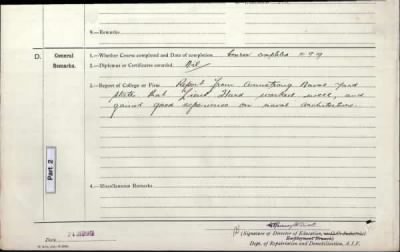 4.—Remarks
D. General Remarks.
1.—Whether Course completed and Date of completion Course completed
2.—Diplomas or Certificates awarded. Nil
3.—Report of College or Firm Report from Armstrong Naval Yard
state that Lieut Hurd worked well, and
gained good experience on naval architecture.
Part 2
4.—Miscellaneous Remarks
Date
(Signature of Director of Education,
Employment Branch)
Dept. of Repatriation and Demobilization, A.I.F.